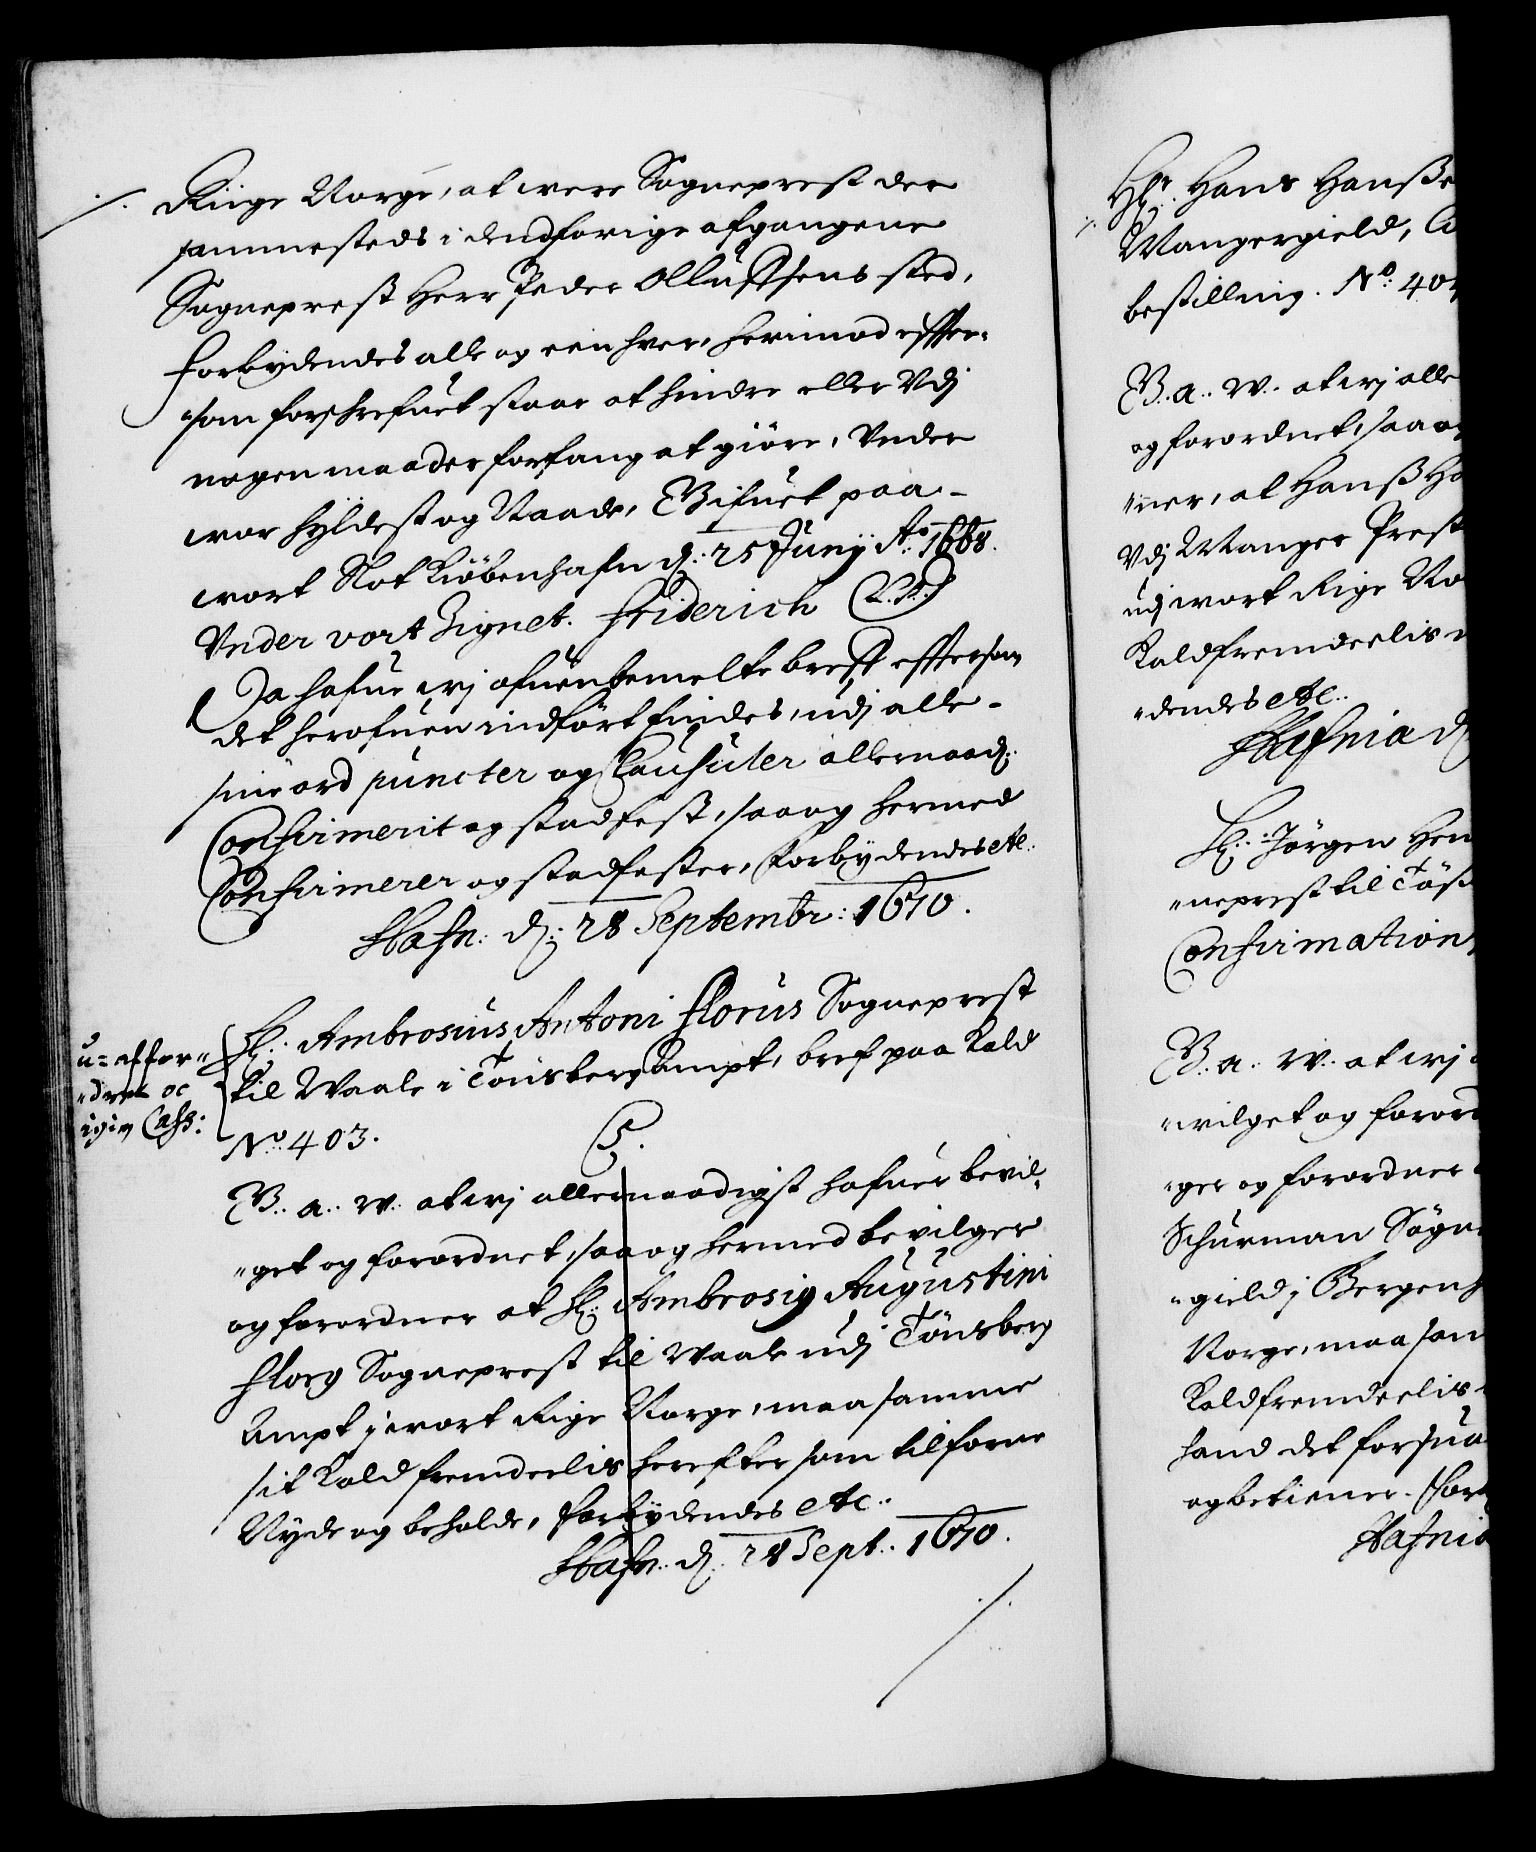 Riige Norge, at were Sogneprest der
sammesteds i dend forige afgangene
Sogneprest Herr Peder Ollufssens sted,
Forbydendes alle og een hver, herimod effter-
som forschrefuet staar at hindre eller Vdj
nogen maader forfang at giøre, Vnder
wor hyldest og Naade, Gifuet paa-
wort Slot Kiøbenhafn d: 25 Junij Ao: 1668.
Vnder vort Zignet. Friderich (L.S.)
Da hafue wj ofuenbemelte breff effter som
det herofuen indført findes, udj alle-
sine ord puncter og Clausuler allernaad:
Confirmerit og stadfest, saa og hermed
Confirmerer og stadfester, Forbydendes etc:
Hafn: d: 28 Septembr: 1670.
H: Ambrosius Antoni Florus Sogneprest
til Waale i Tønsberg Ampt, bref paa Kald
No: 403.
u= affor-
dret oc
igien Cass:
C5.
G: a: w: at wj allernaadigst hafuer bevil-
get og forordnet, saa og hermed bevilger
og forordner at H: Ambrosig Augustini
Florg Sogneprest til Waale udj Tønsberg
Ampt j wort Rige Norge, maa samme
sit Kald fremdeelis herefter som tilforne
Nyde og beholde, Forbydendes etc:
Hafn: d: 28 Sept: 1670.
Hr: Hans Hanße
Mangergield,
bestilling. No: 40
G. a: w: at wj alle
og forordnet, saa og
ner, at Hanß Ha
Vdj Manger Prest
udj wort Rige No
Kald fremdeelis
dendes etc:
Hafnia d
H: Jørgen Hen
neprest til
Confirmation
G. a: w: at wj
wilget og forord
ger og forordner
Schurman Sogne
gield j Bergenh
Norge, maa sam
Kald fremdeelis
hand det forsua
og betiener. For
Hafnia